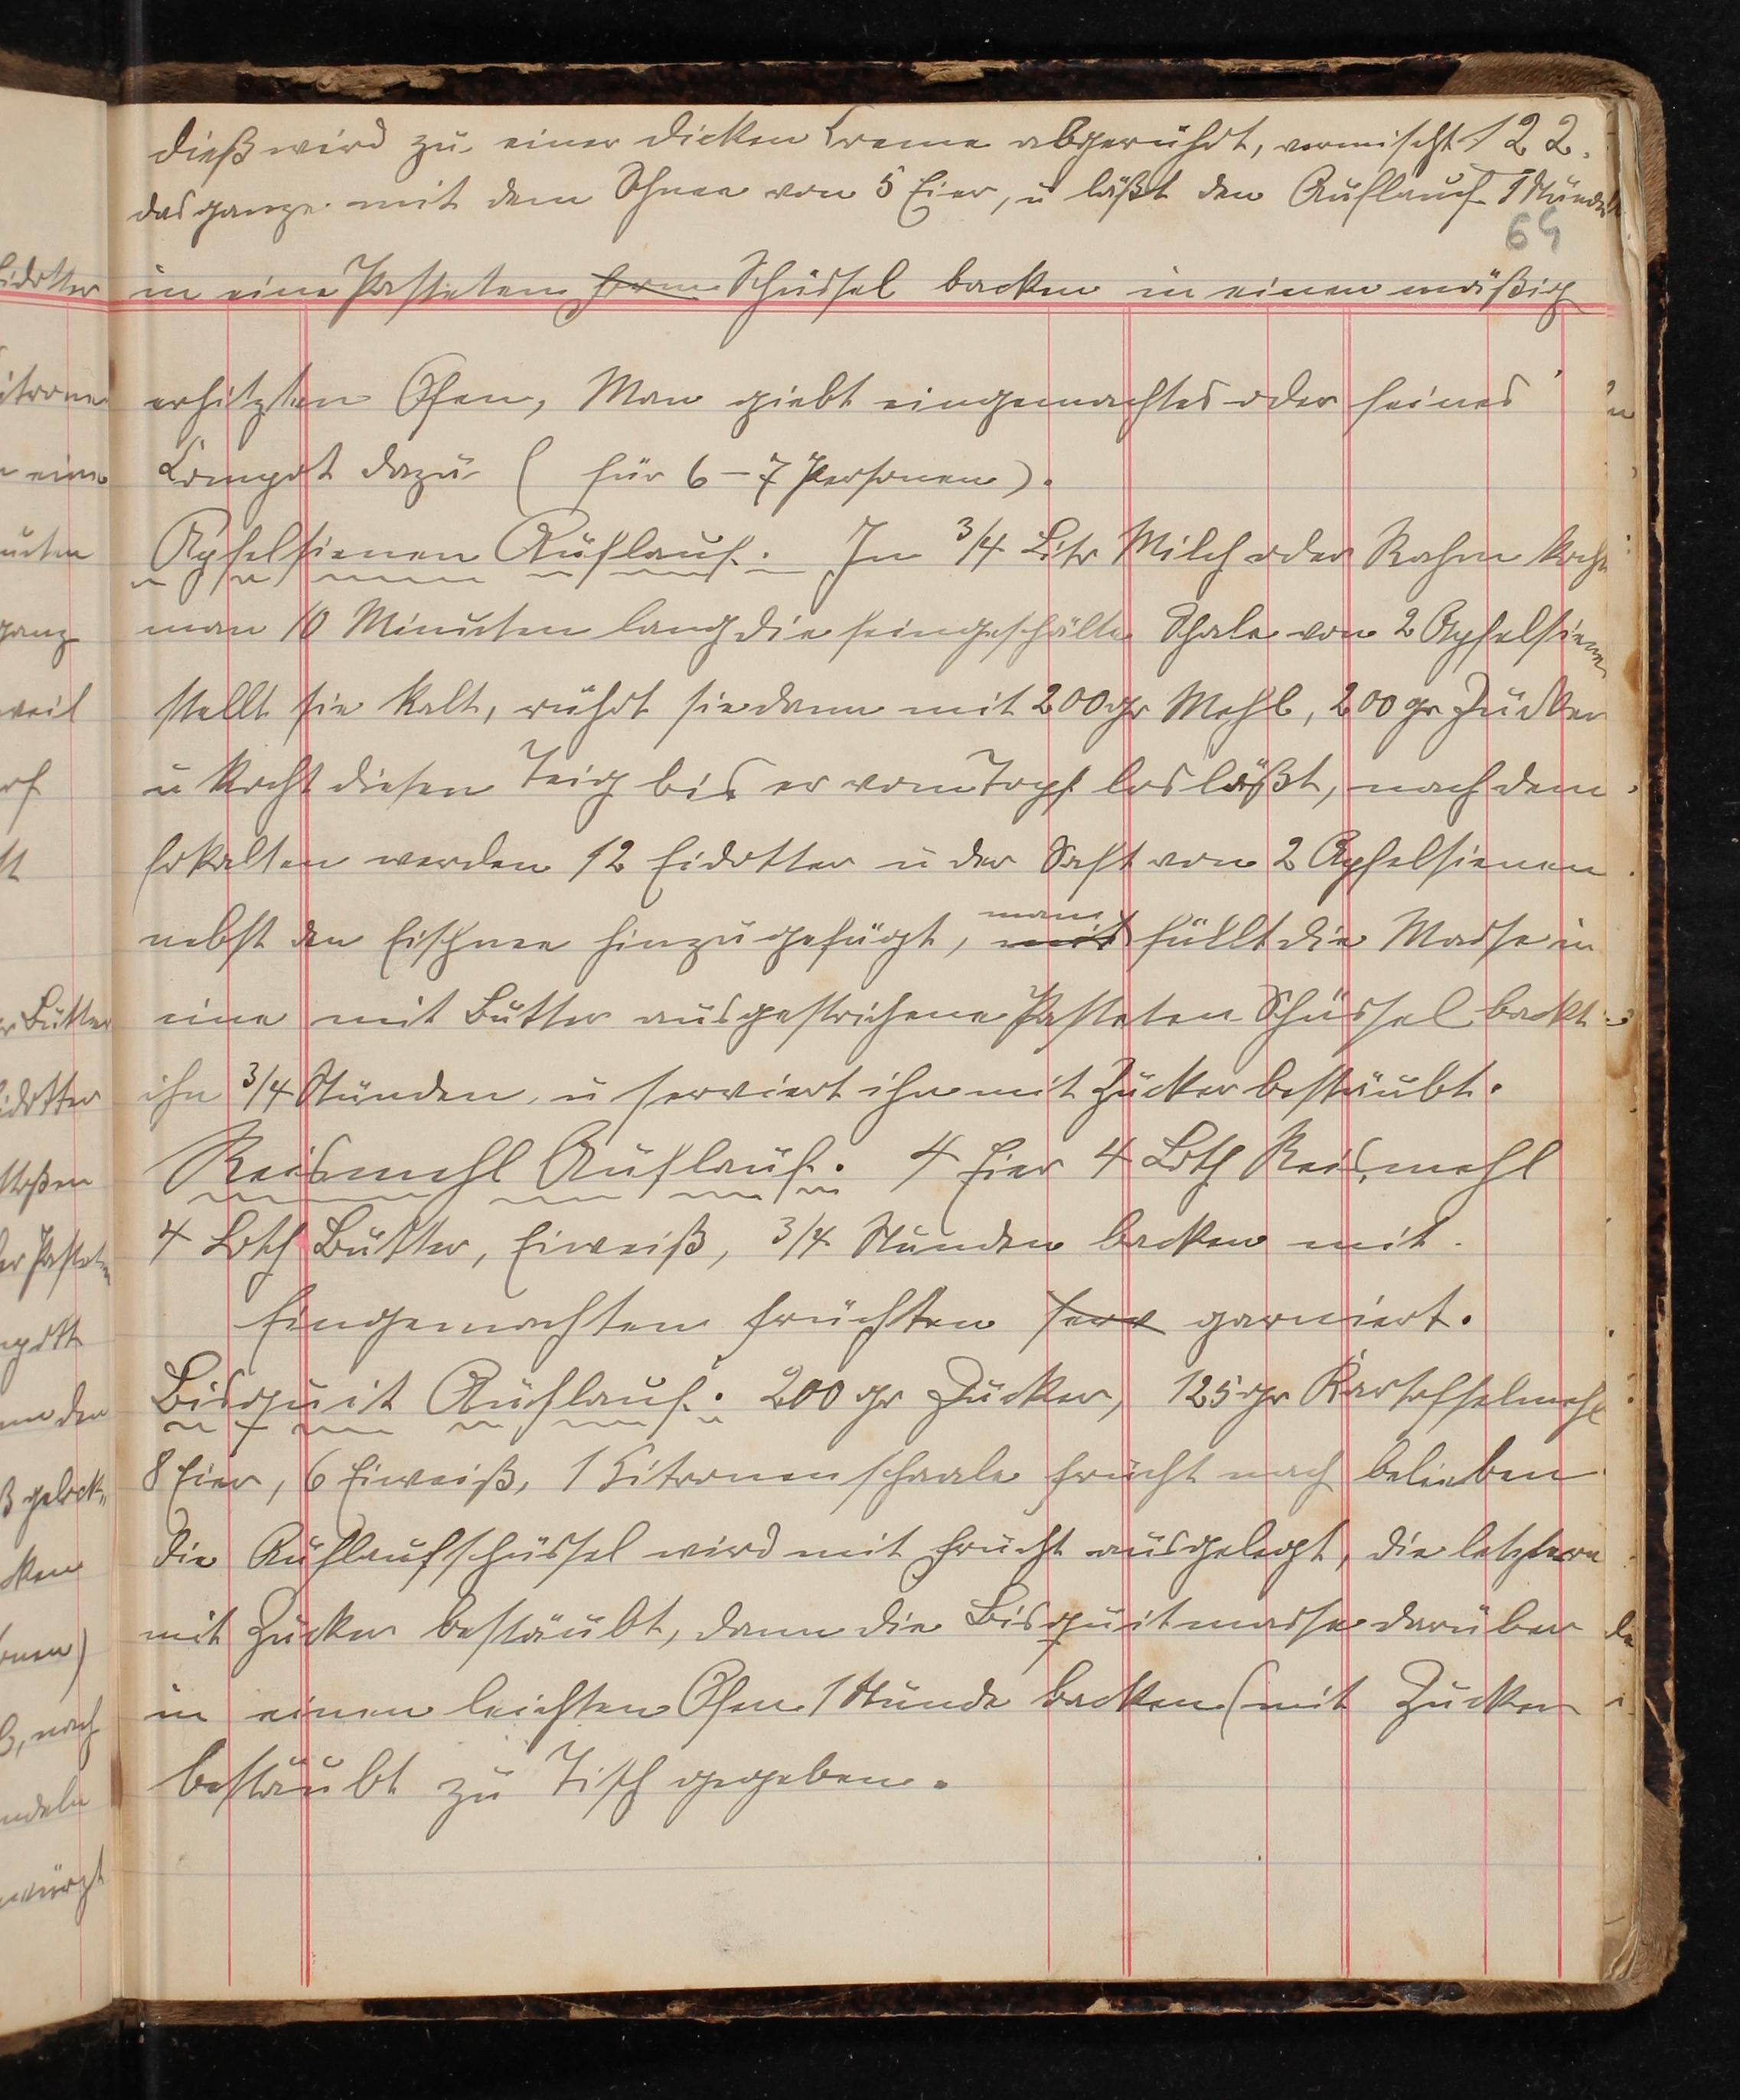 dieß wird zu einer dicken Creme abgerührt, vermischt 122.
das ganze mit dem Schnee von 5 Eier, u läßt den Auflauf 1 Stunde
64
in eine Pasteten form Schüssel backen in einen mäßig
erhitzten Ofen, Man giebt eingemachtes oder feines
Compot dazu ( für 6 – 7 Personen ).
Apfelsienen Auflauf. In 3/4 Litr Milch oder Rahm kocht
man 10 Minuten lang die feingeschälte Schale von 2 Apfelsienen
stellt sie kalt, rührt sie dann mit 200 gr Mehl, 200 gr Zucker
u kocht diesen Teig bis er vom Topf losläßt, nach dem
erkalten werden 12 Eidotter u der Saft von 2 Apfelsienen
man
nebst den Eischnee hinzugefügt, mit füllt die Masse in
eine mit Butter ausgestrichene Pasteten Schüssel backt
ihn 3/4 Stunden, u serviert ihn mit Zucker bestäubt.
Reismehl Auflauf. 4 Eier 4 Loth Reismehl
4 Loth Butter, Eiweiß, 3/4 Stunden backen mit
Eingemachten früchten serv garniert.
Bisquit Auflauf. 200 gr Zucker, 125 gr Kartoffelmehl
8 Eier, 6 Eiweiß, 1 Citronenschaale frücht nach belieben
die Auflaufschüssel wird mit frucht ausgelegt, die letztere
mit Zucker bestäubt, dann die Bisquitmasse darüber
in einen leichten Ofen 1 Stunde backen (mit Zucker
bestäubt zu Tisch gegeben.